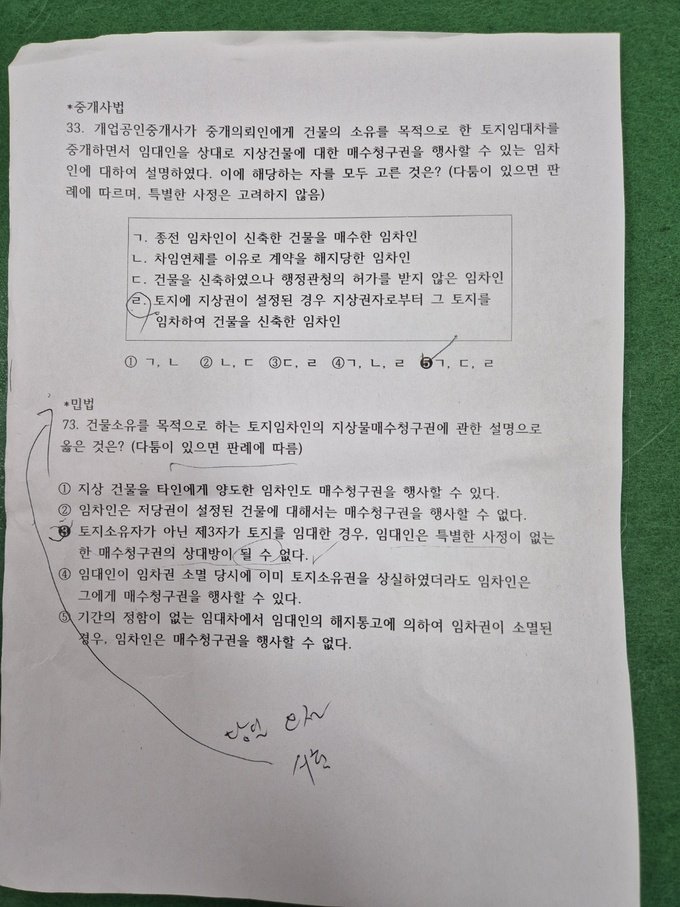 *중개사법
33. 개업공인중개사가 중개의뢰인에게 건물의 소유를 목적으로 한 토지임대차를
중개하면서 임대인을 상대로 지상건물에 대한 매수청구권을 행사할 수 있는 임차
인에 대하여 설명하였다. 이에 해당하는 자를 모두 고른 것은? (다툼이 있으면 판
례에 따르며, 특별한 사정은 고려하지 않음)
ㄱ. 종전 임차인이 신축한 건물을 매수한 임차인
ㄴ. 차임연체를 이유로 계약을 해지당한 임차인
ㄷ. 건물을 신축하였으나 행정관청의 허가를 받지 않은 임차인
ㄹ. 토지에 지상권이 설정된 경우 지상권자로부터 그 토지를
임차하여 건물을 신축한 임차인
① ㄱ, ㄴ ② ㄴ, ㄷ ③ㄷ, ㄹ ④ㄱ, ㄴ, ㄹ ❺ㄱ, ㄷ, ㄹ
*민법
73. 건물소유를 목적으로 하는 토지임차인의 지상물매수청구권에 관한 설명으로
옳은 것은? (다툼이 있으면 판례에 따름)
① 지상 건물을 타인에게 양도한 임차인도 매수청구권을 행사할 수 있다.
② 임차인은 저당권이 설정된 건물에 대해서는 매수청구권을 행사할 수 없다.
❸ 토지소유자가 아닌 제3자가 토지를 임대한 경우, 임대인은 특별한 사정이 없는
한 매수청구권의 상대방이 될 수 없다.
④ 임대인이 임차권 소멸 당시에 이미 토지소유권을 상실하였더라도 임차인은
그에게 매수청구권을 행사할 수 있다.
⑤ 기간의 정함이 없는 임대차에서 임대인의 해지통고에 의하여 임차권이 소멸된
경우, 임차인은 매수청구권을 행사할 수 없다.